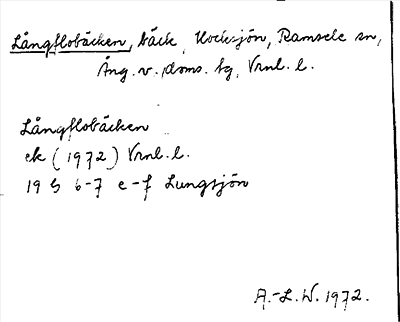 Långflobäcken, bäck, Hocksjön, Ramsele sn,
Ång. v. doms. tg, Vrnl. l.
Långflobäcken
ek (1972) Vrnl. l.
19 G 6-7 e-f Lungsjön
A.-L.W. 1972.